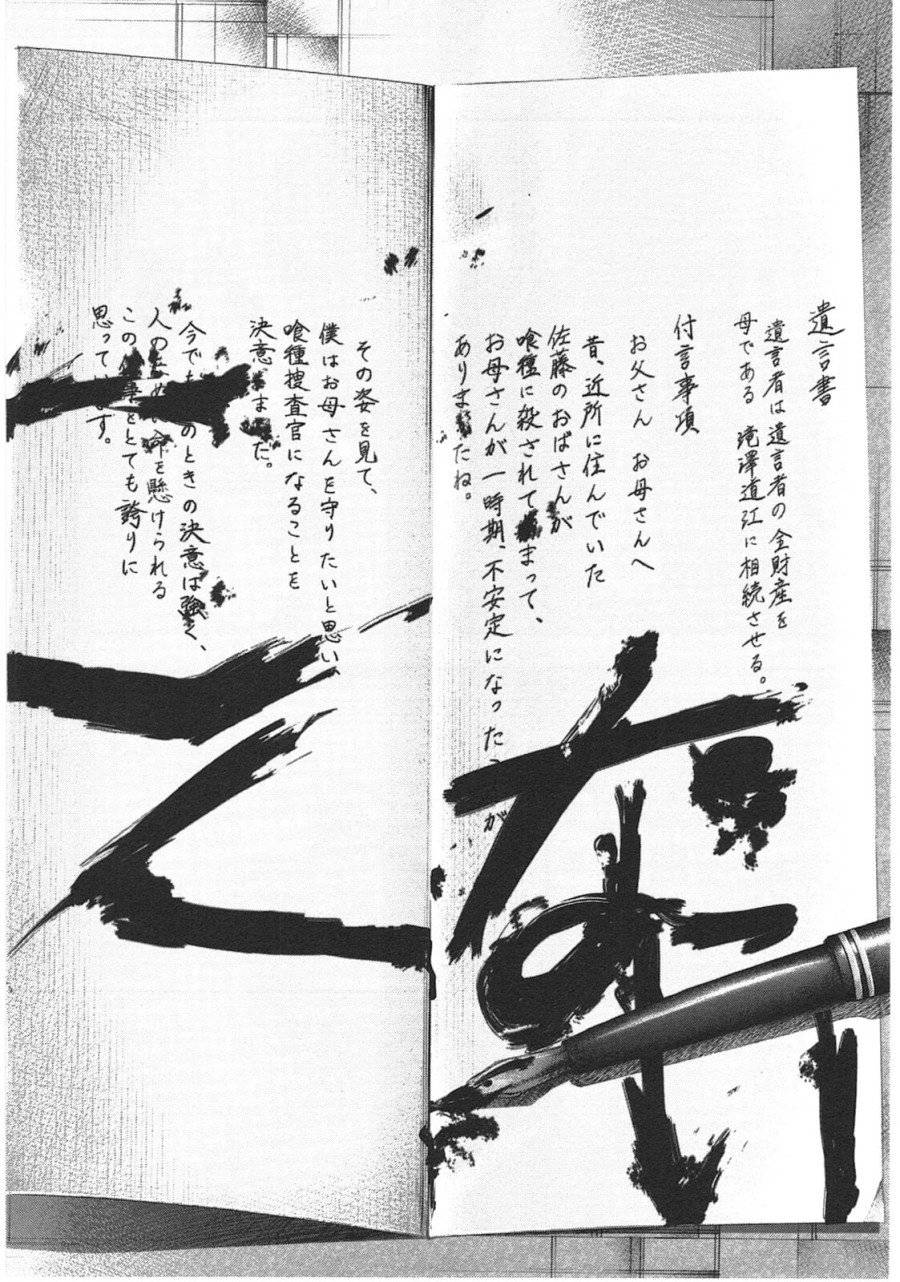 遺言書
遺言者は遺言者の全財産を
母である 滝澤道江に相続させる。
付言事項
お父さん お母さんへ
昔、近所に住んでいた
佐藤のおばさんが
喰種に殺されてしまって、
お母さんが一時期、不安定になった が
ありましたね。
その姿を見て、
僕はお母さんを守りたいと思い、
喰種捜査官になることを
決意しました。
今でも のときの決意は強く、
人のため 命を懸けられる
この仕事をとても誇りに
思って す。